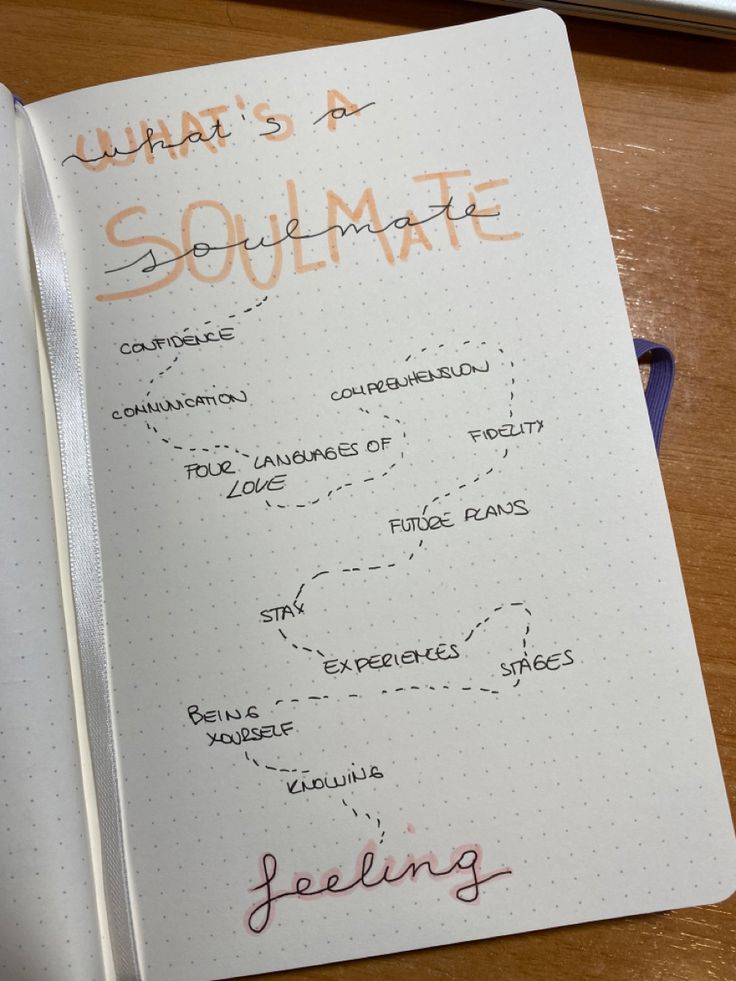 WHAT'S A
what's a
SOULMATE
soulmate
CONFIDENCE
COMMUNICATION
FOUR LANGUAGES OF
LOVE
COMPREHENSION
FIDELITY
FUTURE PLANS
STAY
EXPERIENCES
STAGES
BEING
YOURSELF
KNOWING
feeling
feeling